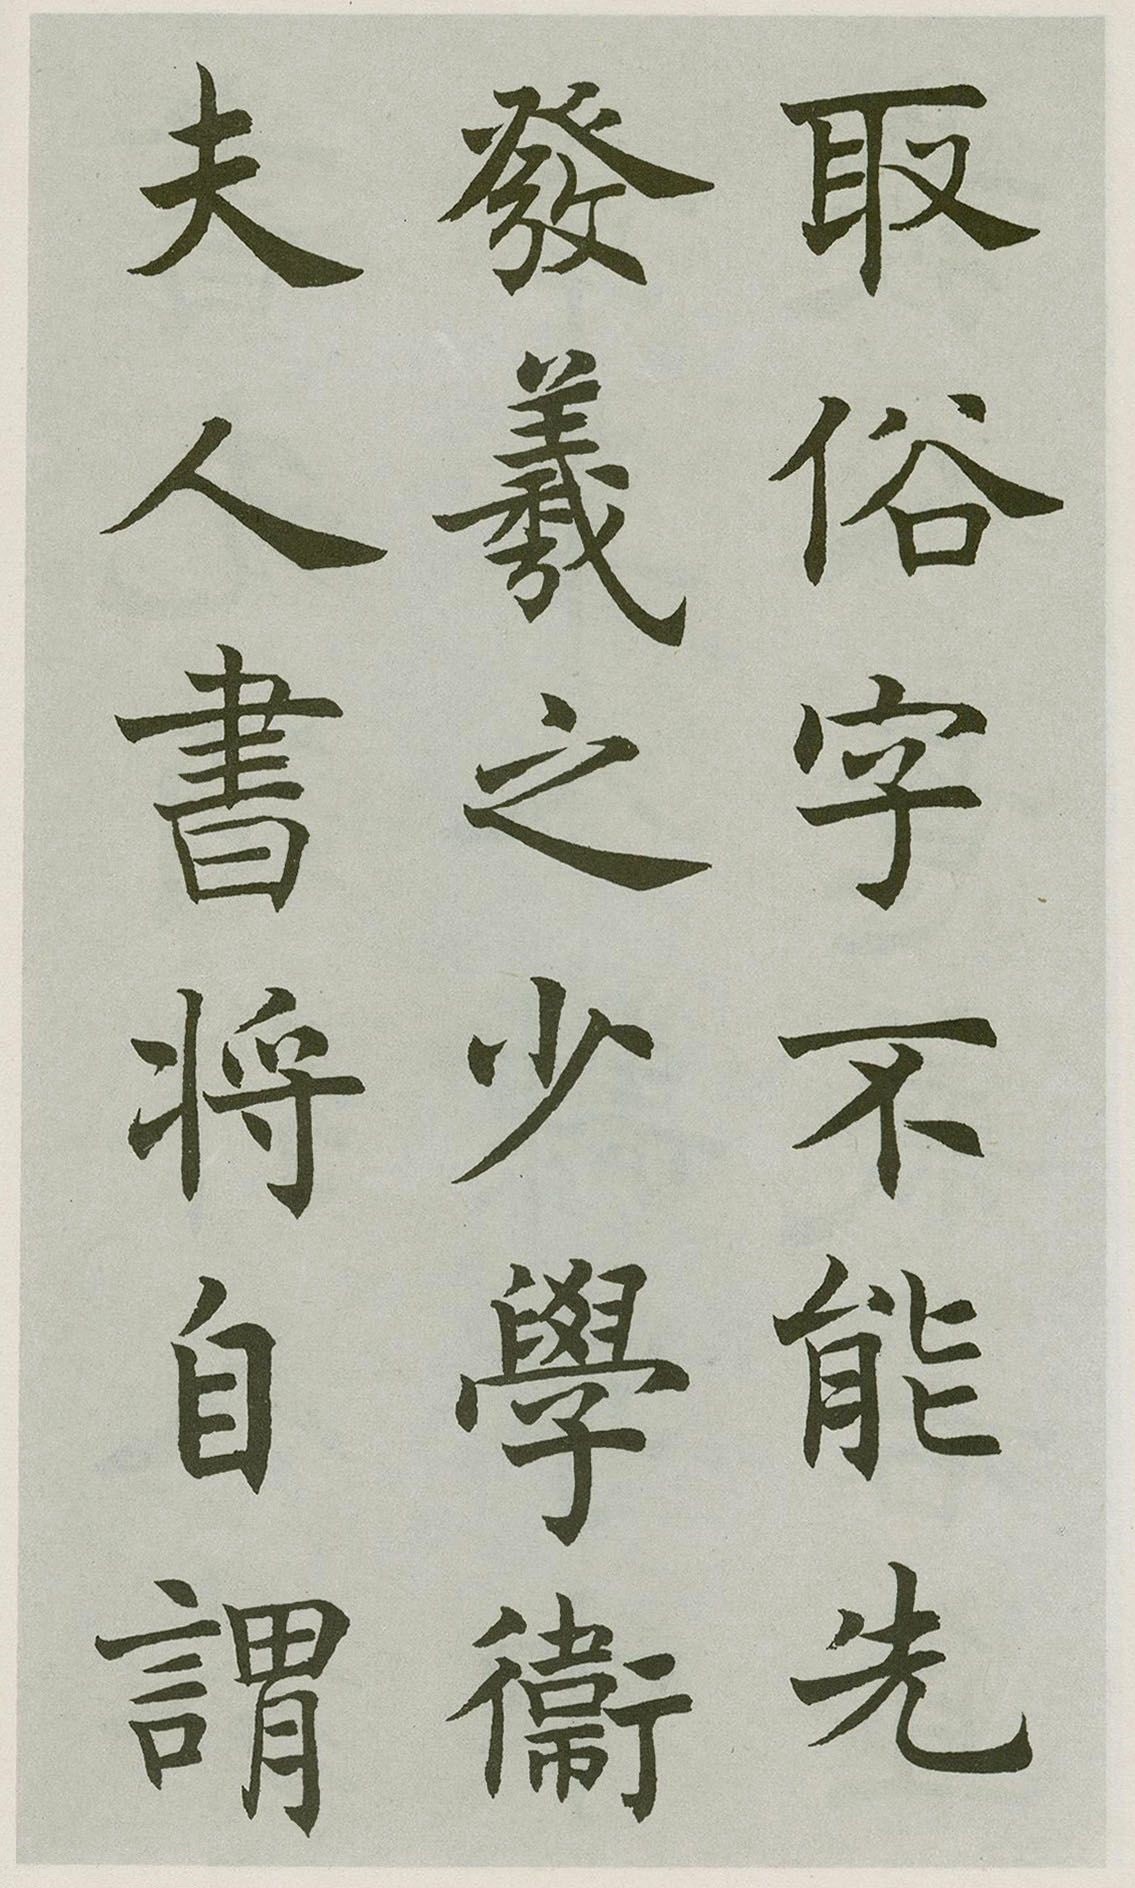 取俗字不能先
發羲之少學衛
夫人書将自謂